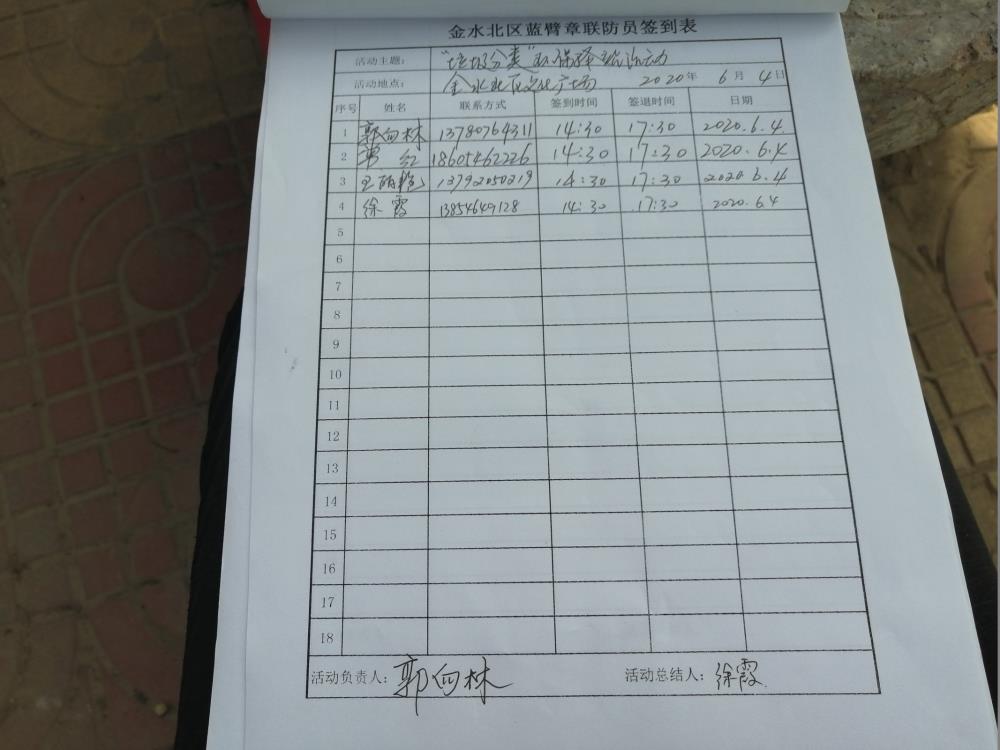 金水北区蓝臂章联防员签到表
活动主题： "垃圾分类"环保活动
活动地点： 金水北区文化广场 2020年 6月 4日
序号 姓名 联系方式 签到时间 签退时间 日期
1 郭向林 13780764311 14:30 17:30 2020.6.4
2 常红 18605462226 14:30 17:30 2020.6.4
3 王 13792050219 14:30 17:30 2020.6.4
4 徐霞 13854649128 14:30 17:30 2020.6.4
5
6
7
8
9
10
11
12
13
14
15
16
17
18
活动负责人： 郭向林 活动总结人： 徐霞